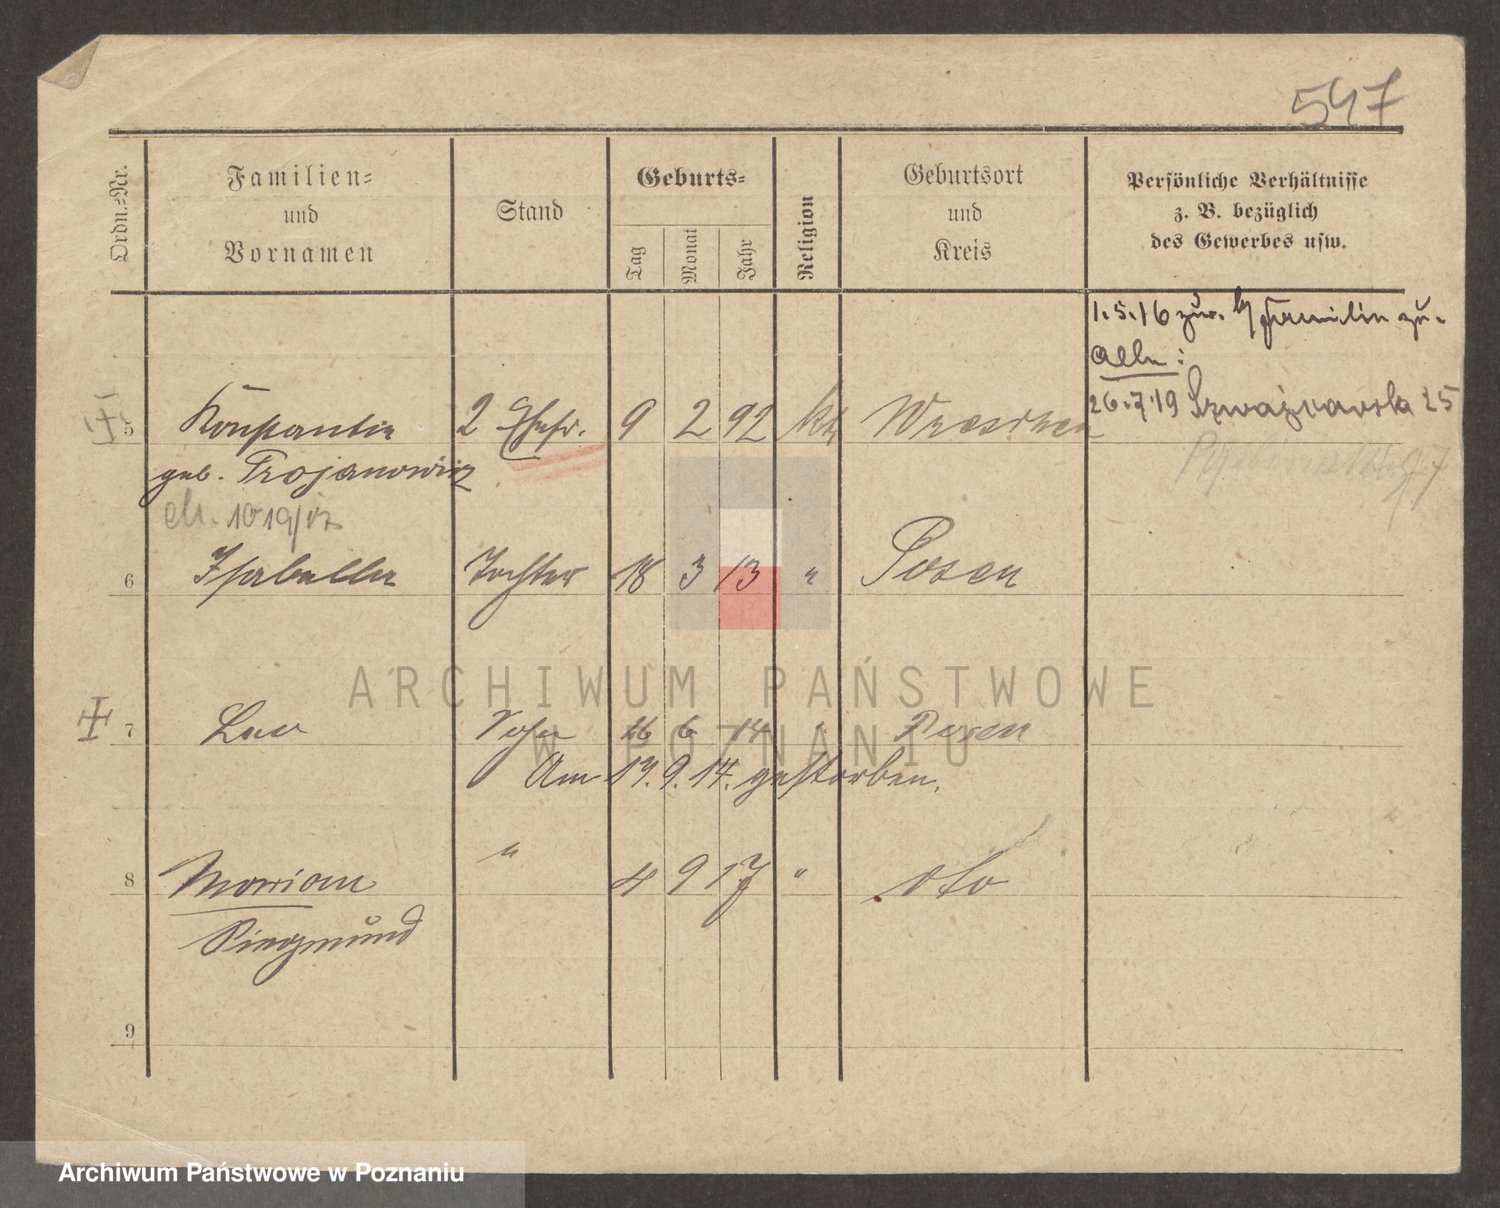 547
Ordn.-Nr.
Familien-
und
Vornamen
Stand
Geburts-
Tag
Monat
Jahr
Religion
Geburtsort
und
Kreis
Persönliche Verhältnisse
z. B. bezüglich
des Gewerbes usw.
1.5.16 zur Familie zu-
26.7.19 25
5 Konstantia 2 Ehefr. 9 2 92 kth Wreschen
geb. Trojanowicz
6 Isabella Tochter 18 3 13 " Posen
7 Leo Sohn 26 6 14 " Posen
Am 19.9.14. gestorben.
8 Marian " 4 9 17 " dto
Siegmund
9
ARCHIWUM PAŃSTWOWE
W POZNANIU
Archiwum Państwowe w Poznaniu